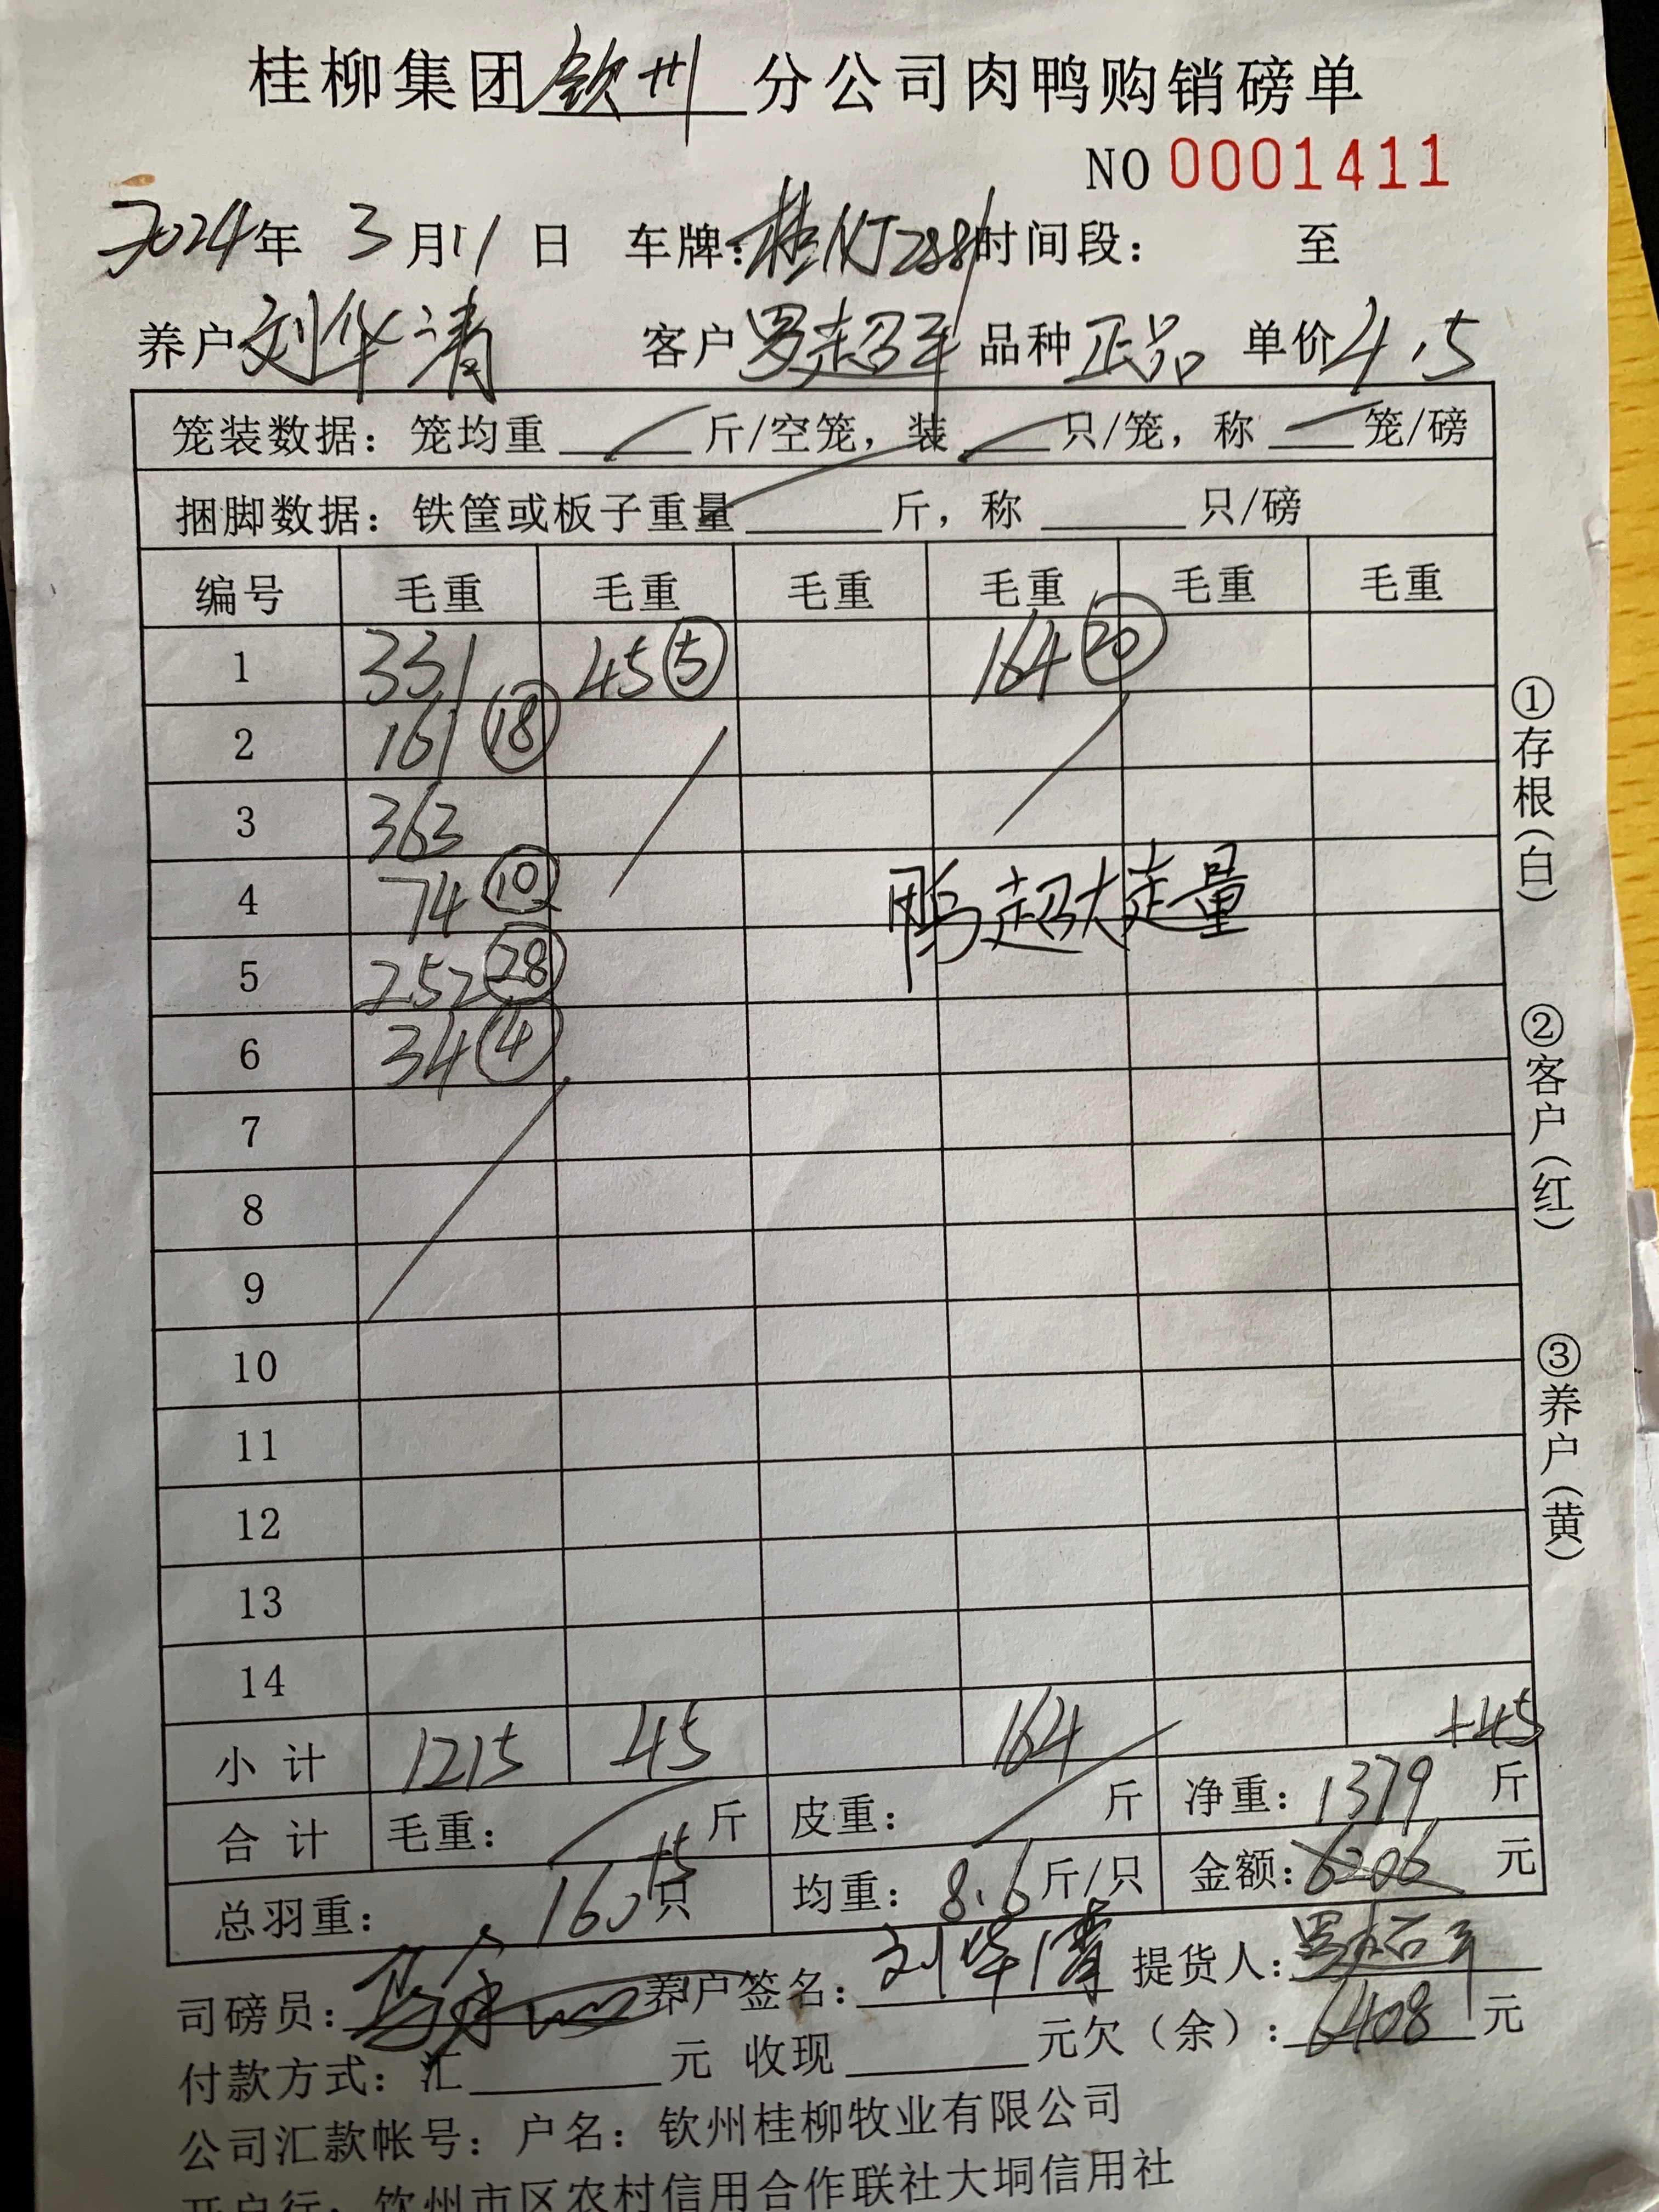 桂柳集团钦州分公司肉鸭购销磅单
NO 0001411
2024年 3月11日 车牌: 时间段: 至
养户刘华清 客户罗超军 品种正品 单价4.5
笼装数据: 笼均重 斤/空笼, 装 只/笼, 称 笼/磅
捆脚数据: 铁筐或板子重量 斤, 称 只/磅
编号 毛重 毛重 毛重 毛重 毛重 毛重
1 331 45⑤ 164⑳
2 161⑱
3 363
4 74⑩
5 252㉘
6 34④
鸭超大定量
7
8
9
10
11
12
13
14
+45
小计 1215 45 164
合计 毛重: 斤 皮重: 斤 净重: 1379 斤
+5
总羽重: 160只 均重: 8.6斤/只 金额: 6206 元
司磅员: 养户签名: 刘华清 提货人: 罗超军
付款方式: 汇 元 收现 元欠(余): 6408 元
公司汇款帐号: 户名: 钦州桂柳牧业有限公司
开户行: 钦州市区农村信用合作联社大垌信用社
①存根(白)
②客户(红)
③养户(黄)